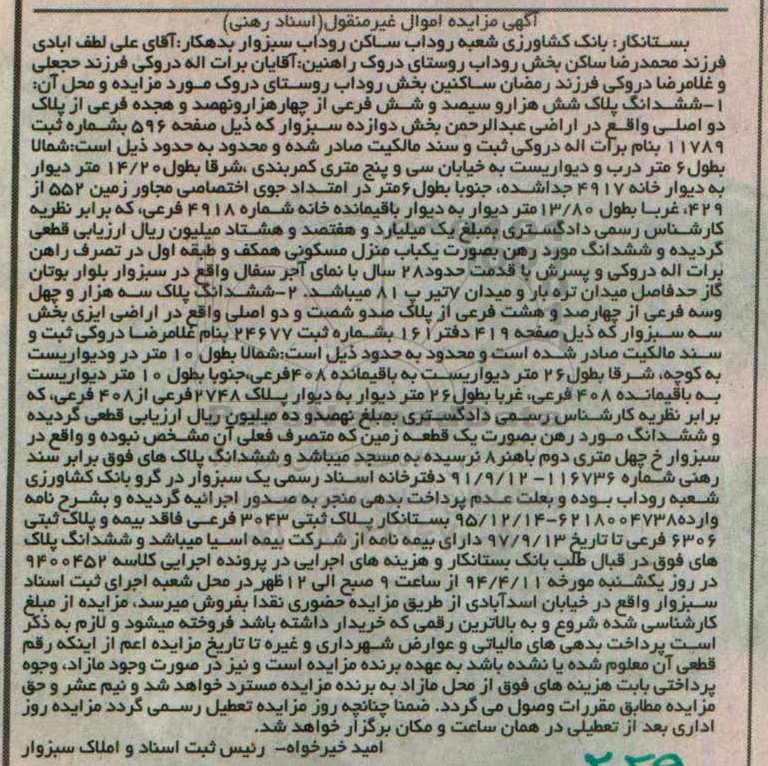 آگهی مزایده اموال غیرمنقول(اسناد رهنی)
بستانکار: بانک کشاورزی شعبه روداب ساکن روداب سبزوار بدهکار:آقای علی لطف ابادی
فرزند محمدرضا ساکن بخش روداب روستای دروک راهنین:آقایان برات اله دروکی فرزند حجعلی
و غلامرضا دروکی فرزند رمضان ساکنین بخش روداب روستای دروک مورد مزایده و محل آن:
۱-ششدانگ پلاک شش هزارو سیصد و شش فرعی از چهارهزارونهصد و هجده فرعی از پلاک
دو اصلی واقع در اراضی عبدالرحمن بخش دوازده سبزوار که ذیل صفحه ۵۹۶ بشماره ثبت
۱۱۷۸۹ بنام برات اله دروکی ثبت و سند مالکیت صادر شده و محدود به حدود ذیل است:شمالا
بطول۶ متر درب و دیواریست به خیابان سی و پنج متری کمربندی ،شرقا بطول۱۴/۲۰ متر دیوار
به دیوار خانه ۴۹۱۷ جداشده، جنوبا بطول۶متر در امتداد جوی اختصاصی مجاور زمین ۵۵۲ از
۴۲۹، غربا بطول ۱۳/۸۰متر دیوار به دیوار باقیمانده خانه شماره ۴۹۱۸ فرعی، که برابر نظریه
کارشناس رسمی دادگستری بمبلغ یک میلیارد و هفتصد و هشتاد میلیون ریال ارزیابی قطعی
گردیده و ششدانگ مورد رهن بصورت یکباب منزل مسکونی همکف و طبقه اول در تصرف راهن
برات اله دروکی و پسرش با قدمت حدود۲۸ سال با نمای آجر سفال واقع در سبزوار بلوار بوتان
گاز حدفاصل میدان تره بار و میدان ۷تیر پ ۸۱ میباشد. ۲-ششدانگ پلاک سه هزار و چهل
وسه فرعی از چهارصد و هشت فرعی از پلاک صدو شصت و دو اصلی واقع در اراضی ایزی بخش
سه سبزوار که ذیل صفحه ۴۱۹ دفتر۱۶۱ بشماره ثبت ۲۴۶۷۷ بنام غلامرضا دروکی ثبت و
سند مالکیت صادر شده است و محدود به حدود ذیل است:شمالا بطول ۱۰ متر در ودیواریست
به کوچه، شرقا بطول۲۶ متر دیواریست به باقیمانده ۴۰۸فرعی،جنوبا بطول ۱۰ متر دیواریست
به باقیمانده ۴۰۸ فرعی، غربا بطول۲۶ متر دیوار به دیوار پلاک ۲۷۴۸فرعی از۴۰۸ فرعی، که
برابر نظریه کارشناس رسمی دادگستری بمبلغ نهصدو ده میلیون ریال ارزیابی قطعی گردیده
و ششدانگ مورد رهن بصورت یک قطعه زمین که متصرف فعلی آن مشخص نبوده و واقع در
سبزوار خ چهل متری دوم باهنر۸ نرسیده به مسجد میباشد و ششدانگ پلاک های فوق برابر سند
رهنی شماره ۱۱۶۷۳۶-۹۱/۹/۱۲ دفترخانه اسناد رسمی یک سبزوار در گرو بانک کشاورزی
شعبه روداب بوده و بعلت عدم پرداخت بدهی منجر به صدور اجرائیه گردیده و بشرح نامه
وارده۶۲۱۸۰۰۴۷۳۸-۹۵/۱۲/۱۴ بستانکار پلاک ثبتی ۳۰۴۳ فرعی فاقد بیمه و پلاک ثبتی
۶۳۰۶ فرعی تا تاریخ ۹۷/۹/۱۳ دارای بیمه نامه از شرکت بیمه اسیا میباشد و ششدانگ پلاک
های فوق در قبال طلب بانک بستانکار و هزینه های اجرایی در پرونده اجرایی کلاسه ۹۴۰۰۴۵۲
در روز یکشنبه مورخه ۹۴/۴/۱۱ از ساعت ۹ صبح الی ۱۲ظهر در محل شعبه اجرای ثبت اسناد
سبزوار واقع در خیابان اسدآبادی از طریق مزایده حضوری نقدا بفروش میرسد، مزایده از مبلغ
کارشناسی شده شروع و به بالاترین رقمی که خریدار داشته باشد فروخته میشود و لازم به ذکر
است پرداخت بدهی های مالیاتی و عوارض شهرداری و غیره تا تاریخ مزایده اعم از اینکه رقم
قطعی آن معلوم شده یا نشده باشد به عهده برنده مزایده است و نیز در صورت وجود مازاد، وجوه
پرداختی بابت هزینه های فوق از محل مازاد به برنده مزایده مسترد خواهد شد و نیم عشر و حق
مزایده مطابق مقررات وصول می گردد. ضمنا چنانچه روز مزایده تعطیل رسمی گردد مزایده روز
اداری بعد از تعطیلی در همان ساعت و مکان برگزار خواهد شد.
امید خیرخواه- رئیس ثبت اسناد و املاک سبزوار